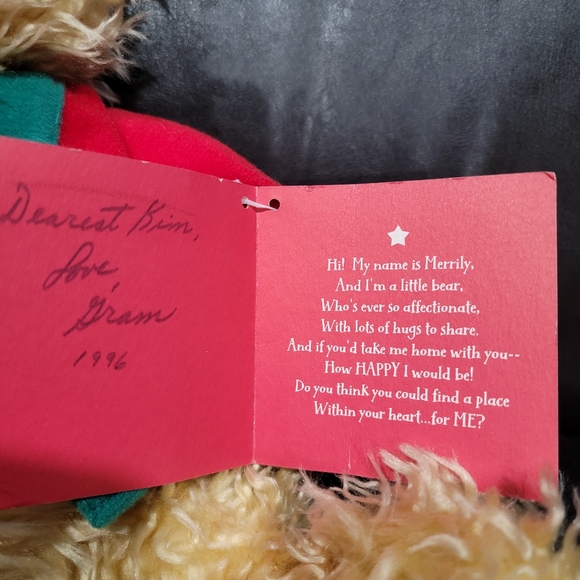 Dearest Kim,
Love
Gram
1996
Hi! My name is Merrily,
And I'm a little bear,
Who's ever so affectionate,
With lots of hugs to share.
And if you'd take me home with you--
How HAPPY I would be!
Do you think you could find a place
Within your heart...for ME?